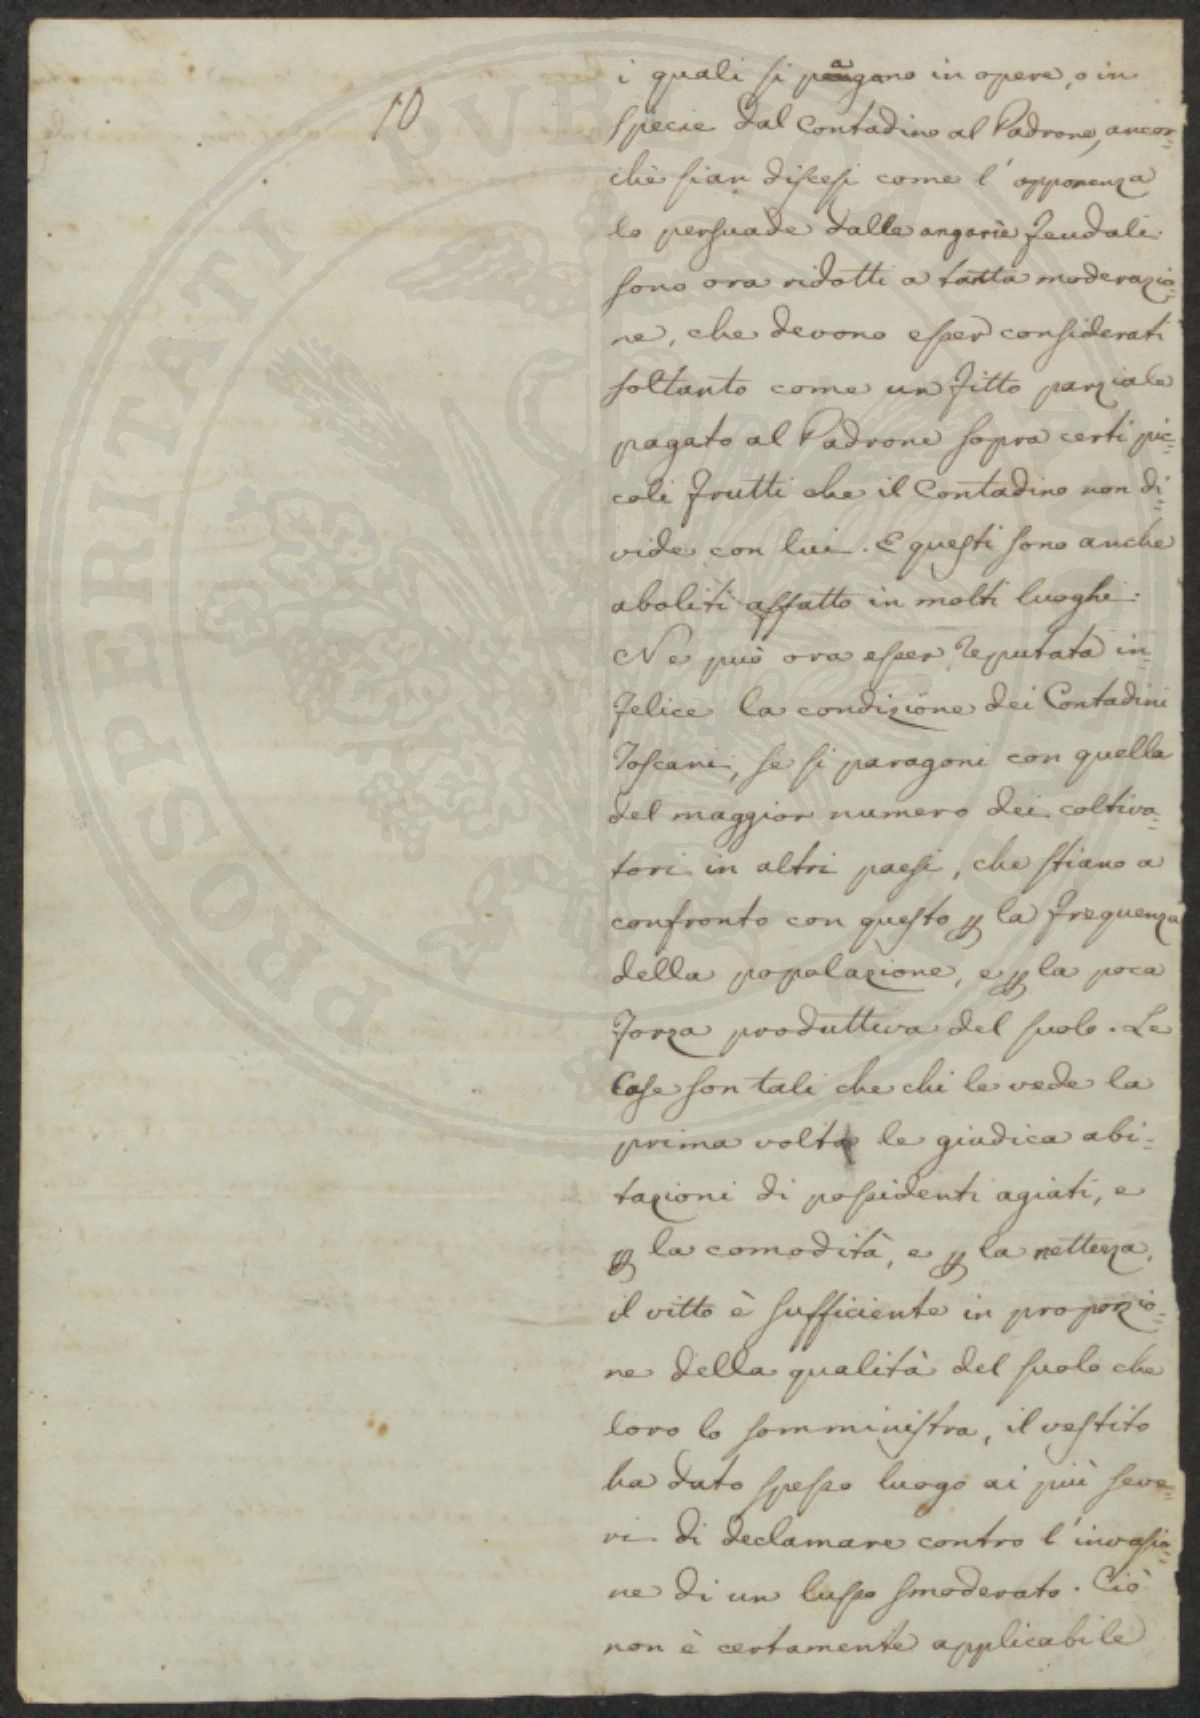 10
i quali si pagano in opere, o in
specie dal Contadino al Padrone, ancor=
chè sian discesi come l'apparenza
lo persuade dalle angarie feudali
sono ora ridotti a tanta moderazio=
ne, che devono esser considerati
soltanto come un fitto parziale
pagato al Padrone sopra certi pic=
coli frutti che il Contadino non di=
vide con lui. E questi sono anche
aboliti affatto in molti luoghi.
Ne può ora esser reputata in=
felice la condizione dei Contadini
Toscani, se si paragoni con quella
del maggior numero dei coltiva=
tori in altri paesi, che stiano a
confronto con questo p la frequenza
della popolazione, e p la poca
forza produttiva del suolo. Le
Case son tali che chi le vede la
prima volta le giudica abi=
tazioni di possidenti agiati, e
p la comodità, e p la nettezza,
il vitto è sufficiente in proporzio=
ne della qualità del suolo che
loro lo somministra, il vestito
ha dato spesso luogo ai più seve=
ri di declamare contro l'invasio=
ne di un lusso smoderato. Ciò
non è certamente applicabile
PUBLICAE
PROSPERITATI